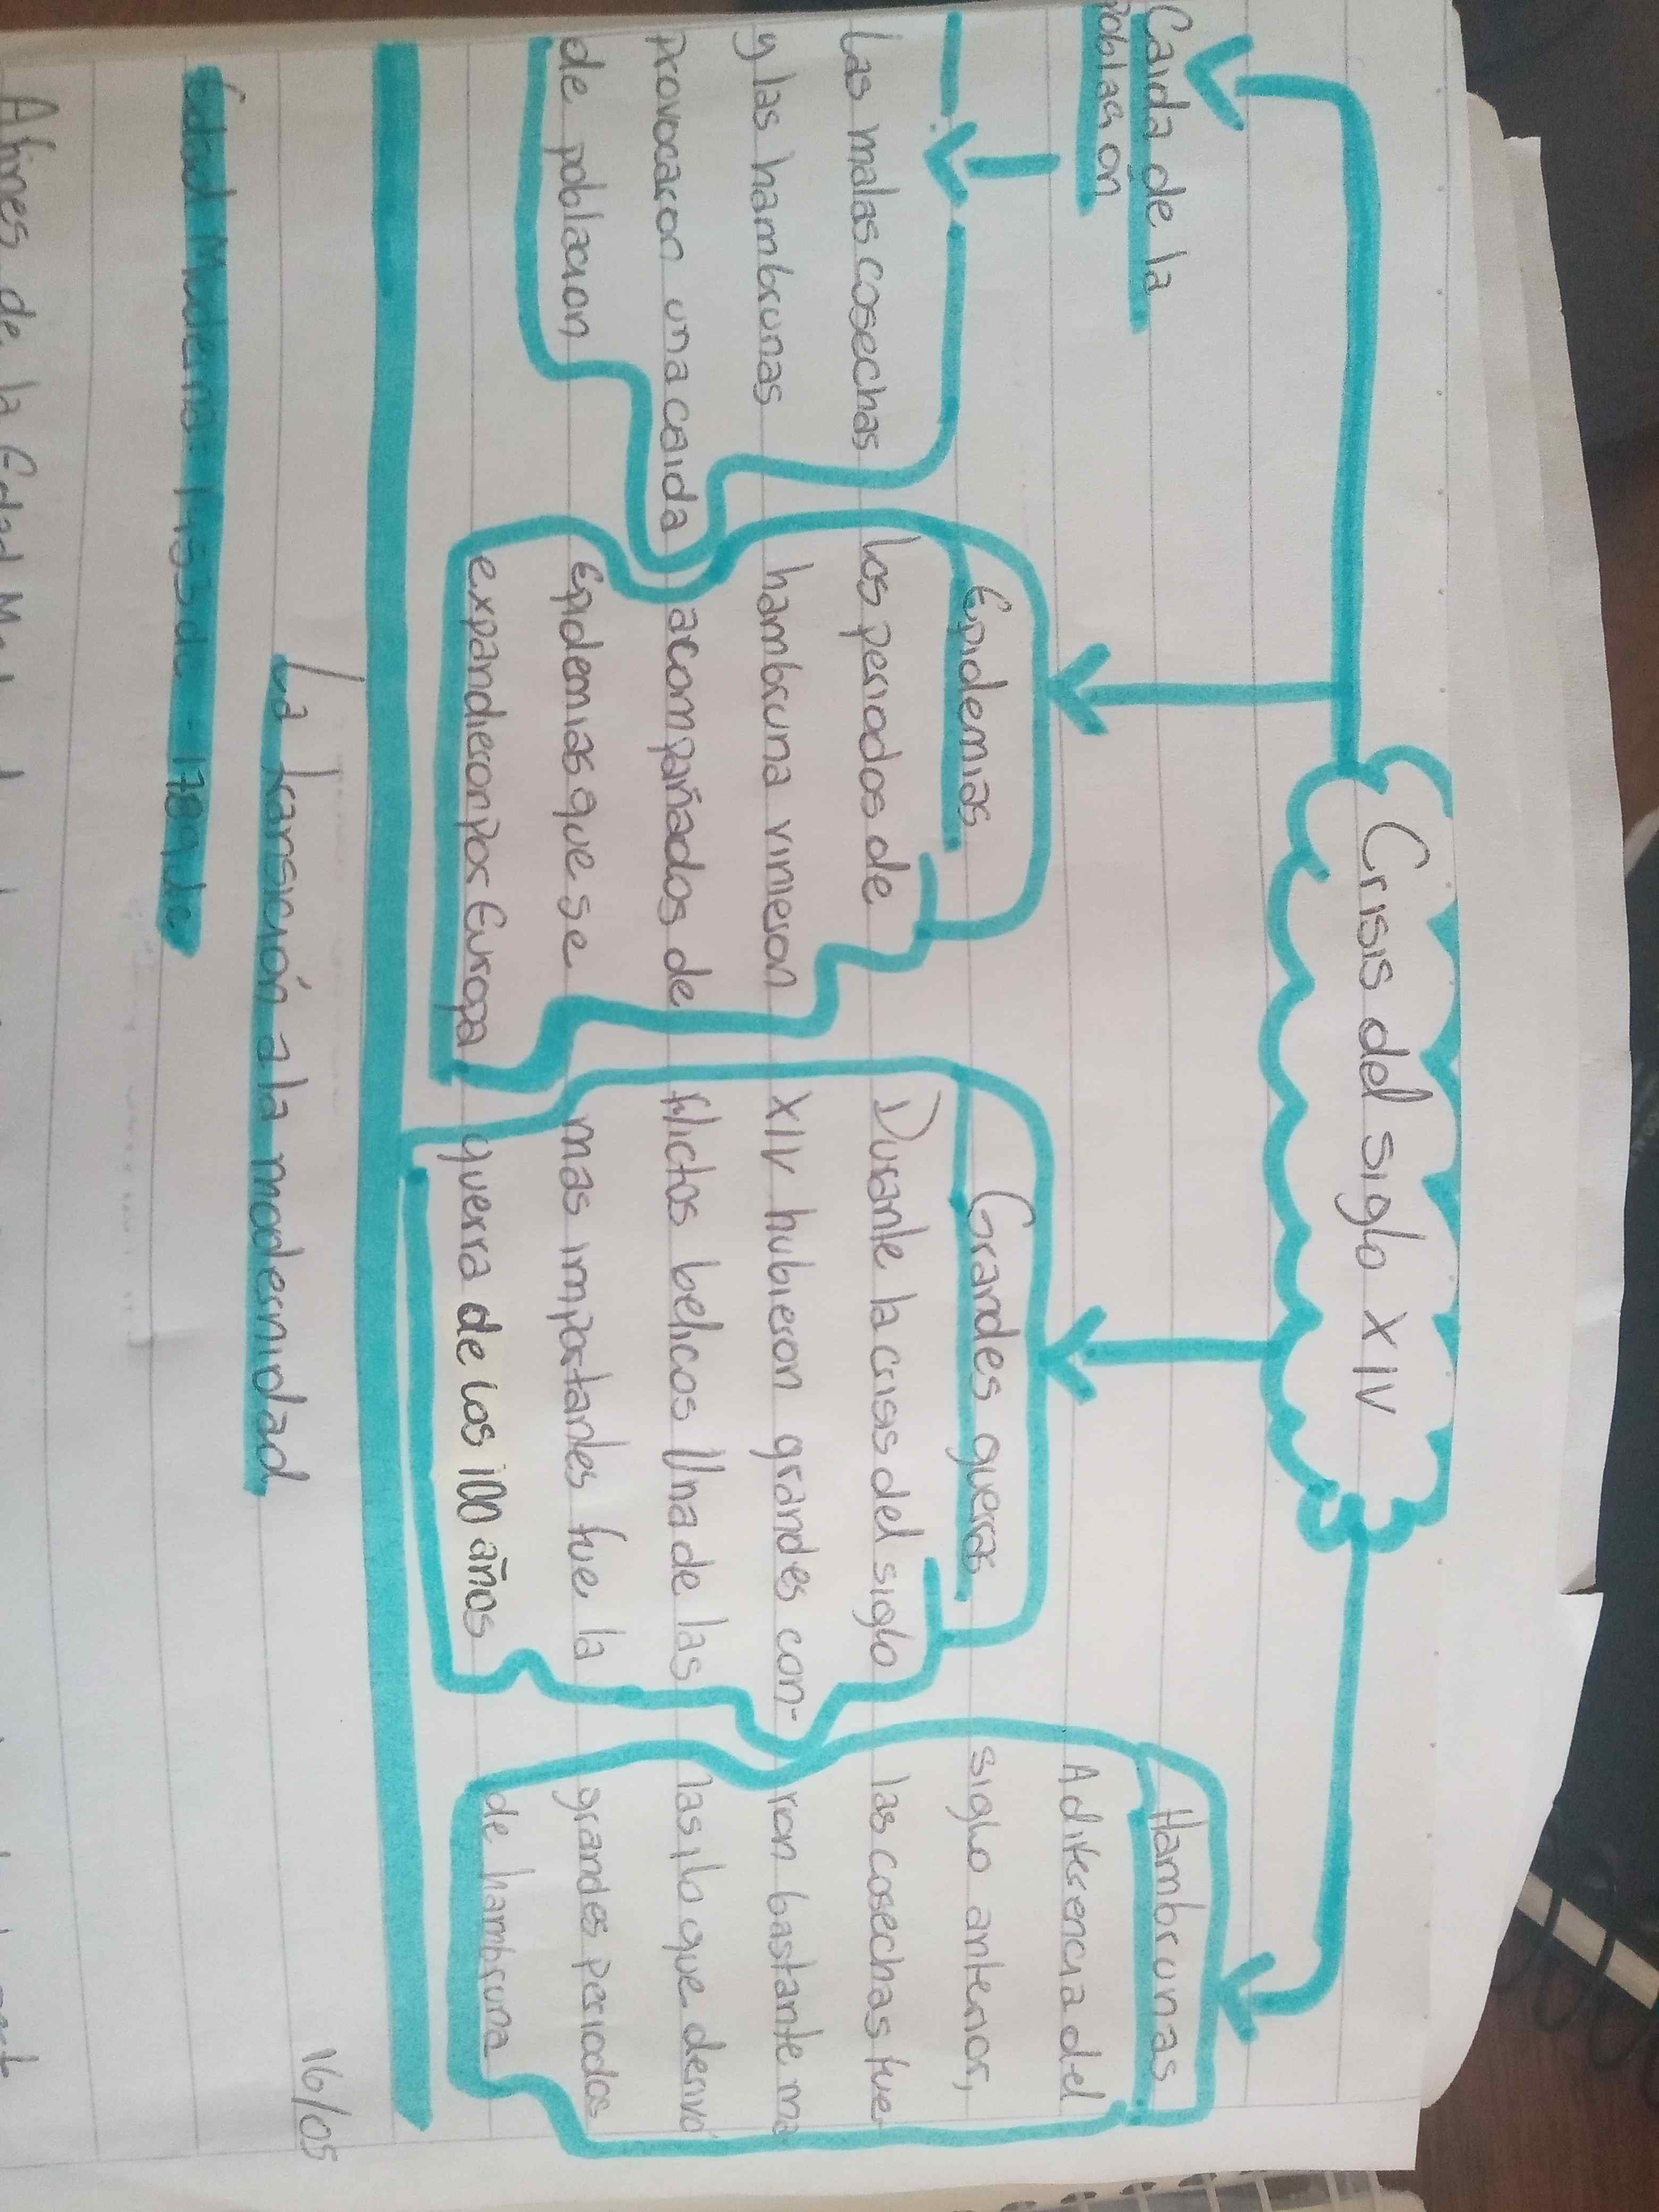 Crisis del siglo XIV
Caida de la
poblacion
Las malas cosechas
y las hambrunas
provocaron una caida
de poblacion
Epidemias
los periodos de
hambruna vinieron
acompañados de
Epidemias que se
expandieron por Europa
Grandes guerras
Durante la crisis del siglo
XIV hubieron grandes con-
flictos belicos Una de las
mas importantes fue la
guerra de los 100 años
Hambrunas
A diferencia del
siglo anterior,
las cosechas fue-
ron bastante ma
las, lo que derivó
grandes periodos
de hambruna
16/05
La transición a la modernidad
Edad Moderna: 1453 dc - 1789 dc
A fines de la Edad